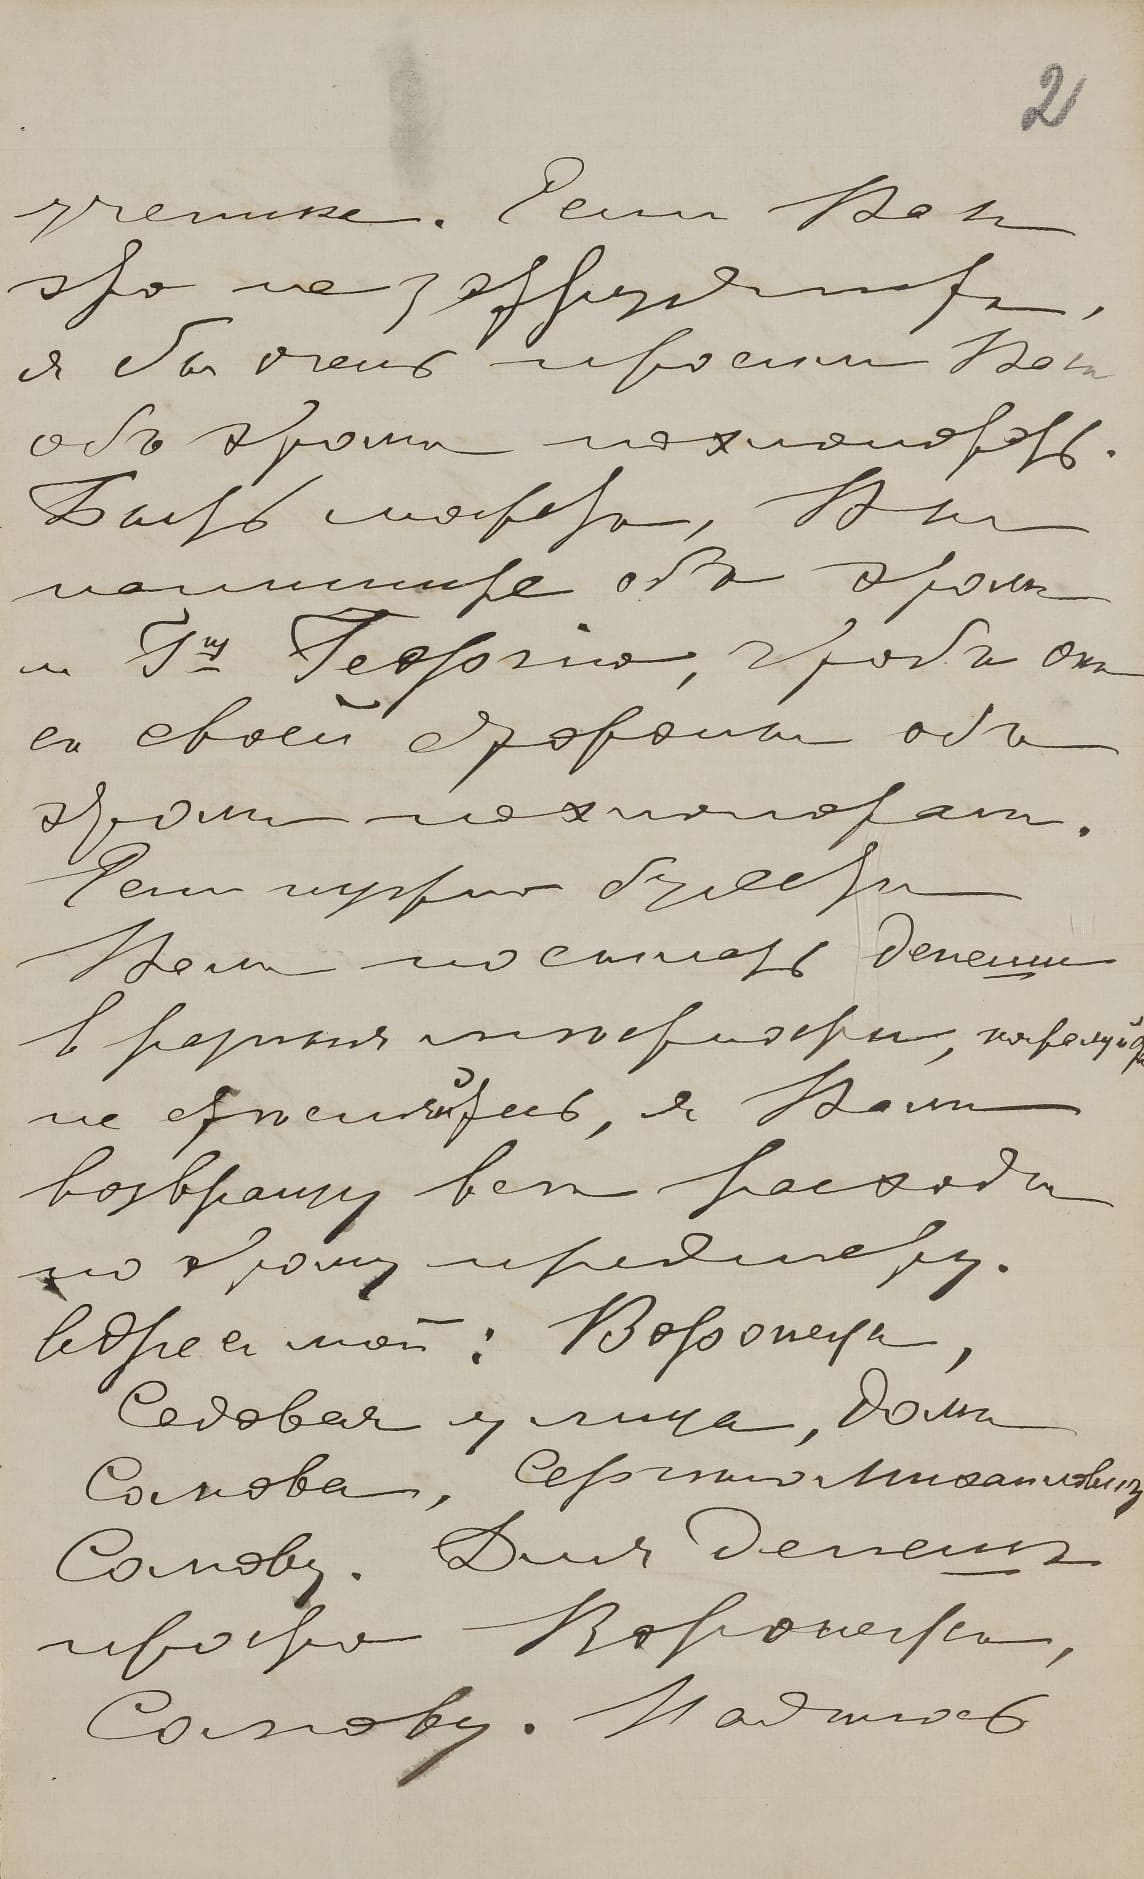 2
ученика. Если Васъ
это не затруднитъ,
я бы очень просилъ Васъ
объ этомъ похлопотать.
Быть можетъ, Вы
напишите объ этомъ
и Г-ну Георгію, чтобъ онъ
съ своей стороны объ
этомъ похлопоталъ.
Если нужно будетъ
Вамъ посылать депеши
в разныя мѣста, пожалуйста
не стѣсняйтесь, я Вамъ
возвращу всѣ расходы
по этому предмету.
Адресъ мой: Воронежъ,
Садовая улица, домъ
Сомова, Сергѣю Михайловичу
Сомову. Для депешъ
просто Воронежъ,
Сомову. Надѣюсь